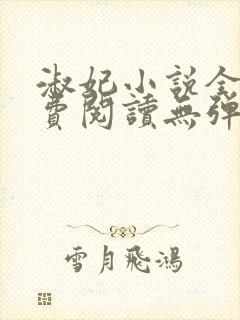 淑妃小說全
費閱讀無彈
雪月飛鴻